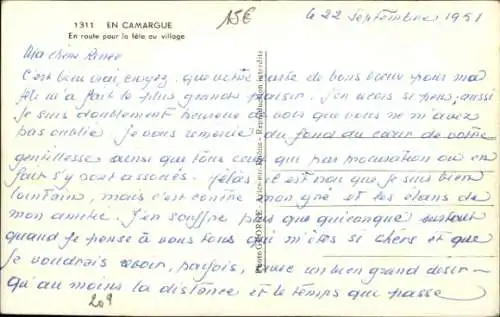 1311 EN CAMARGUE
En route pour la fête au village
15€
Le 22 Septembre 1951
Ma chère Renée
C'est bien vrai, croyez, que votre carte de bons vœux pour ma
fête m'a fait le plus grand plaisir. J'en reçois si peu, aussi
je suis doublement heureuse de vous que vous ne m'avez
pas oublié. Je vous remercie du fond du cœur de votre
gentillesse ainsi que tous ceux qui par procuration ou en
fait s'y sont associés. Hélas c'est non que je suis bien
lointain, mais c'est contre mon gré et les élans de
mon amitié. J'en souffre plus que quiconque surtout
quand je pense à vous tous qui m'êtes si chers et que
je voudrais revoir, parfois, avec un bien grand désir –
qu'au moins la distance et le temps que passe
209
Reproduction interdite